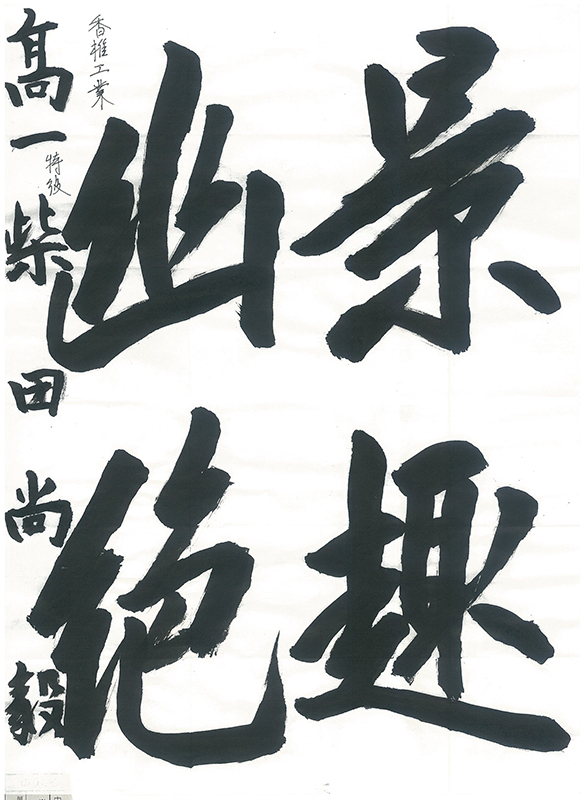 景趣
幽絶
香椎工業
高一柴田尚毅
特級